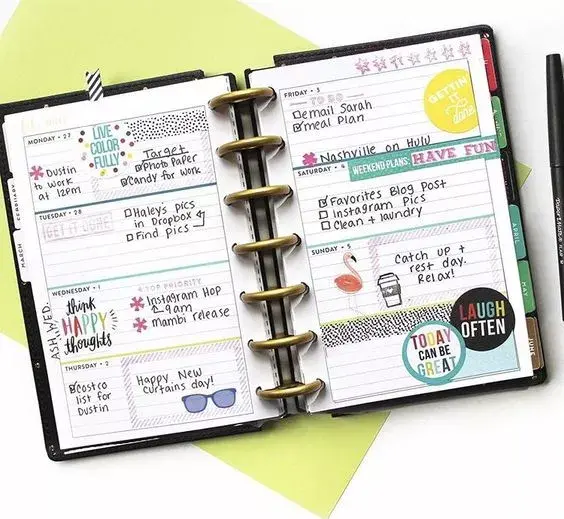 MONDAY • 27
LIVE
COLOR
FULLY
Target
Photo Paper
Candy for work
Dustin
to work
at 12pm
TUESDAY • 28
GET IT DONE!
Haley's pics
in Dropbox
Find pics
WEDNESDAY • 1
ASH WED.
think
HAPPY
thoughts
TOP PRIORITY
Instagram Hop
9am
mambi release
THURSDAY • 2
Costco
list for
Dustin
Happy New
curtains day!
FEBRUARY
MARCH
FRIDAY • 3
TO DO
email Sarah
meal Plan
GETTIN'
IT
done
Nashville on Hulu
SATURDAY • 4
WEEKEND PLANS: HAVE FUN
Favorites Blog Post
Instagram Pics
Clean + laundry
SUNDAY • 5
Catch up +
rest day.
Relax!
LAUGH
OFTEN
TODAY
CAN BE
GREAT
APRIL
MAY
JUNE